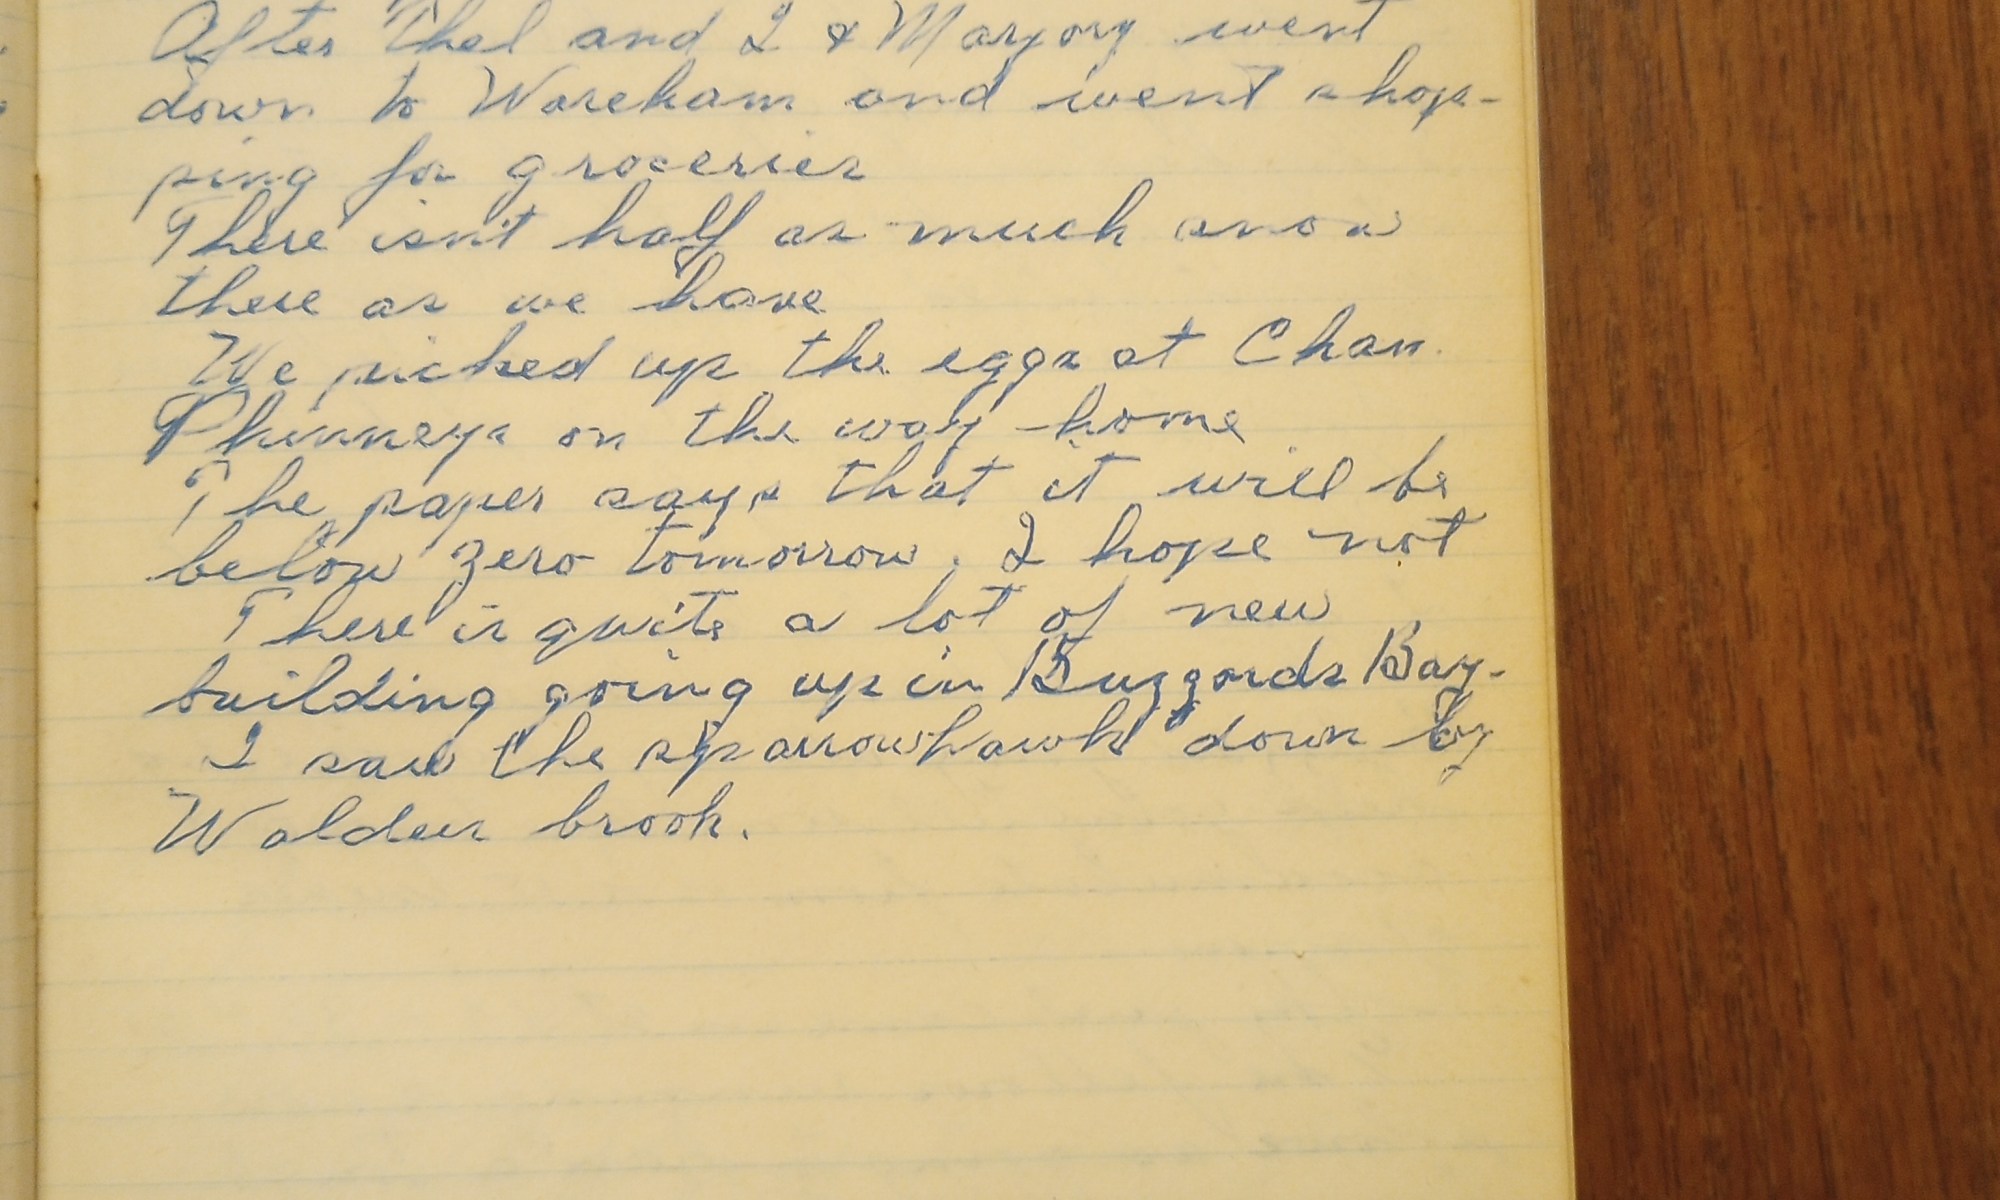 After Thel and I & Marjory went
down to Wareham and went shop-
ping for groceries
There isn't half as much snow
there as we have
We picked up the eggs at Chan.
Phinneys on the way home
The paper says that it will be
below zero tomorrow. I hope not
There is quite a lot of new
building going up in Buzzards Bay.
I saw the sparrowhawk down by
Walden brook.